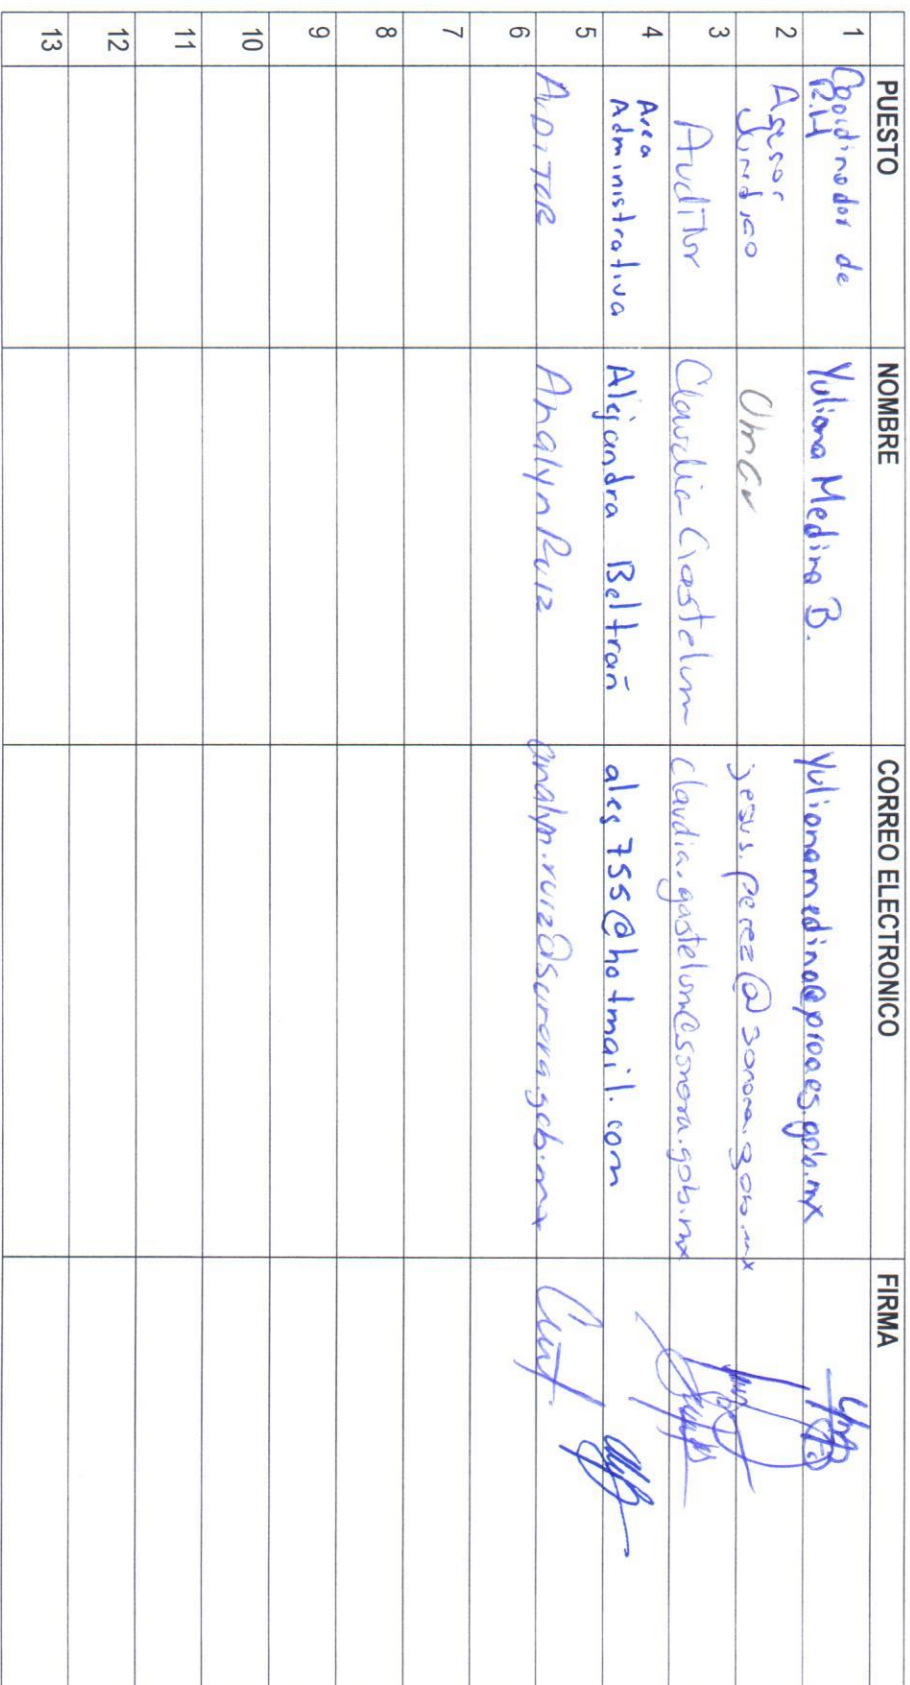 PUESTO NOMBRE CORREO ELECTRONICO FIRMA
1 Cooidinador de R.H Yuliana Medina B. Yulianamedina@proaes.gob.mx
2 Asesor Juridico Omar jesus.perez@sonora.gob.mx
3 Auditor Claudia Gastelum claudia.gastelum@sonora.gob.mx
4 Area Administrativa Alejandra Beltrañ ales755@hotmail.com
5 AUDITOR Analyn Ruiz analyn.ruiz@sonora.gob.mx
6
7
8
9
10
11
12
13